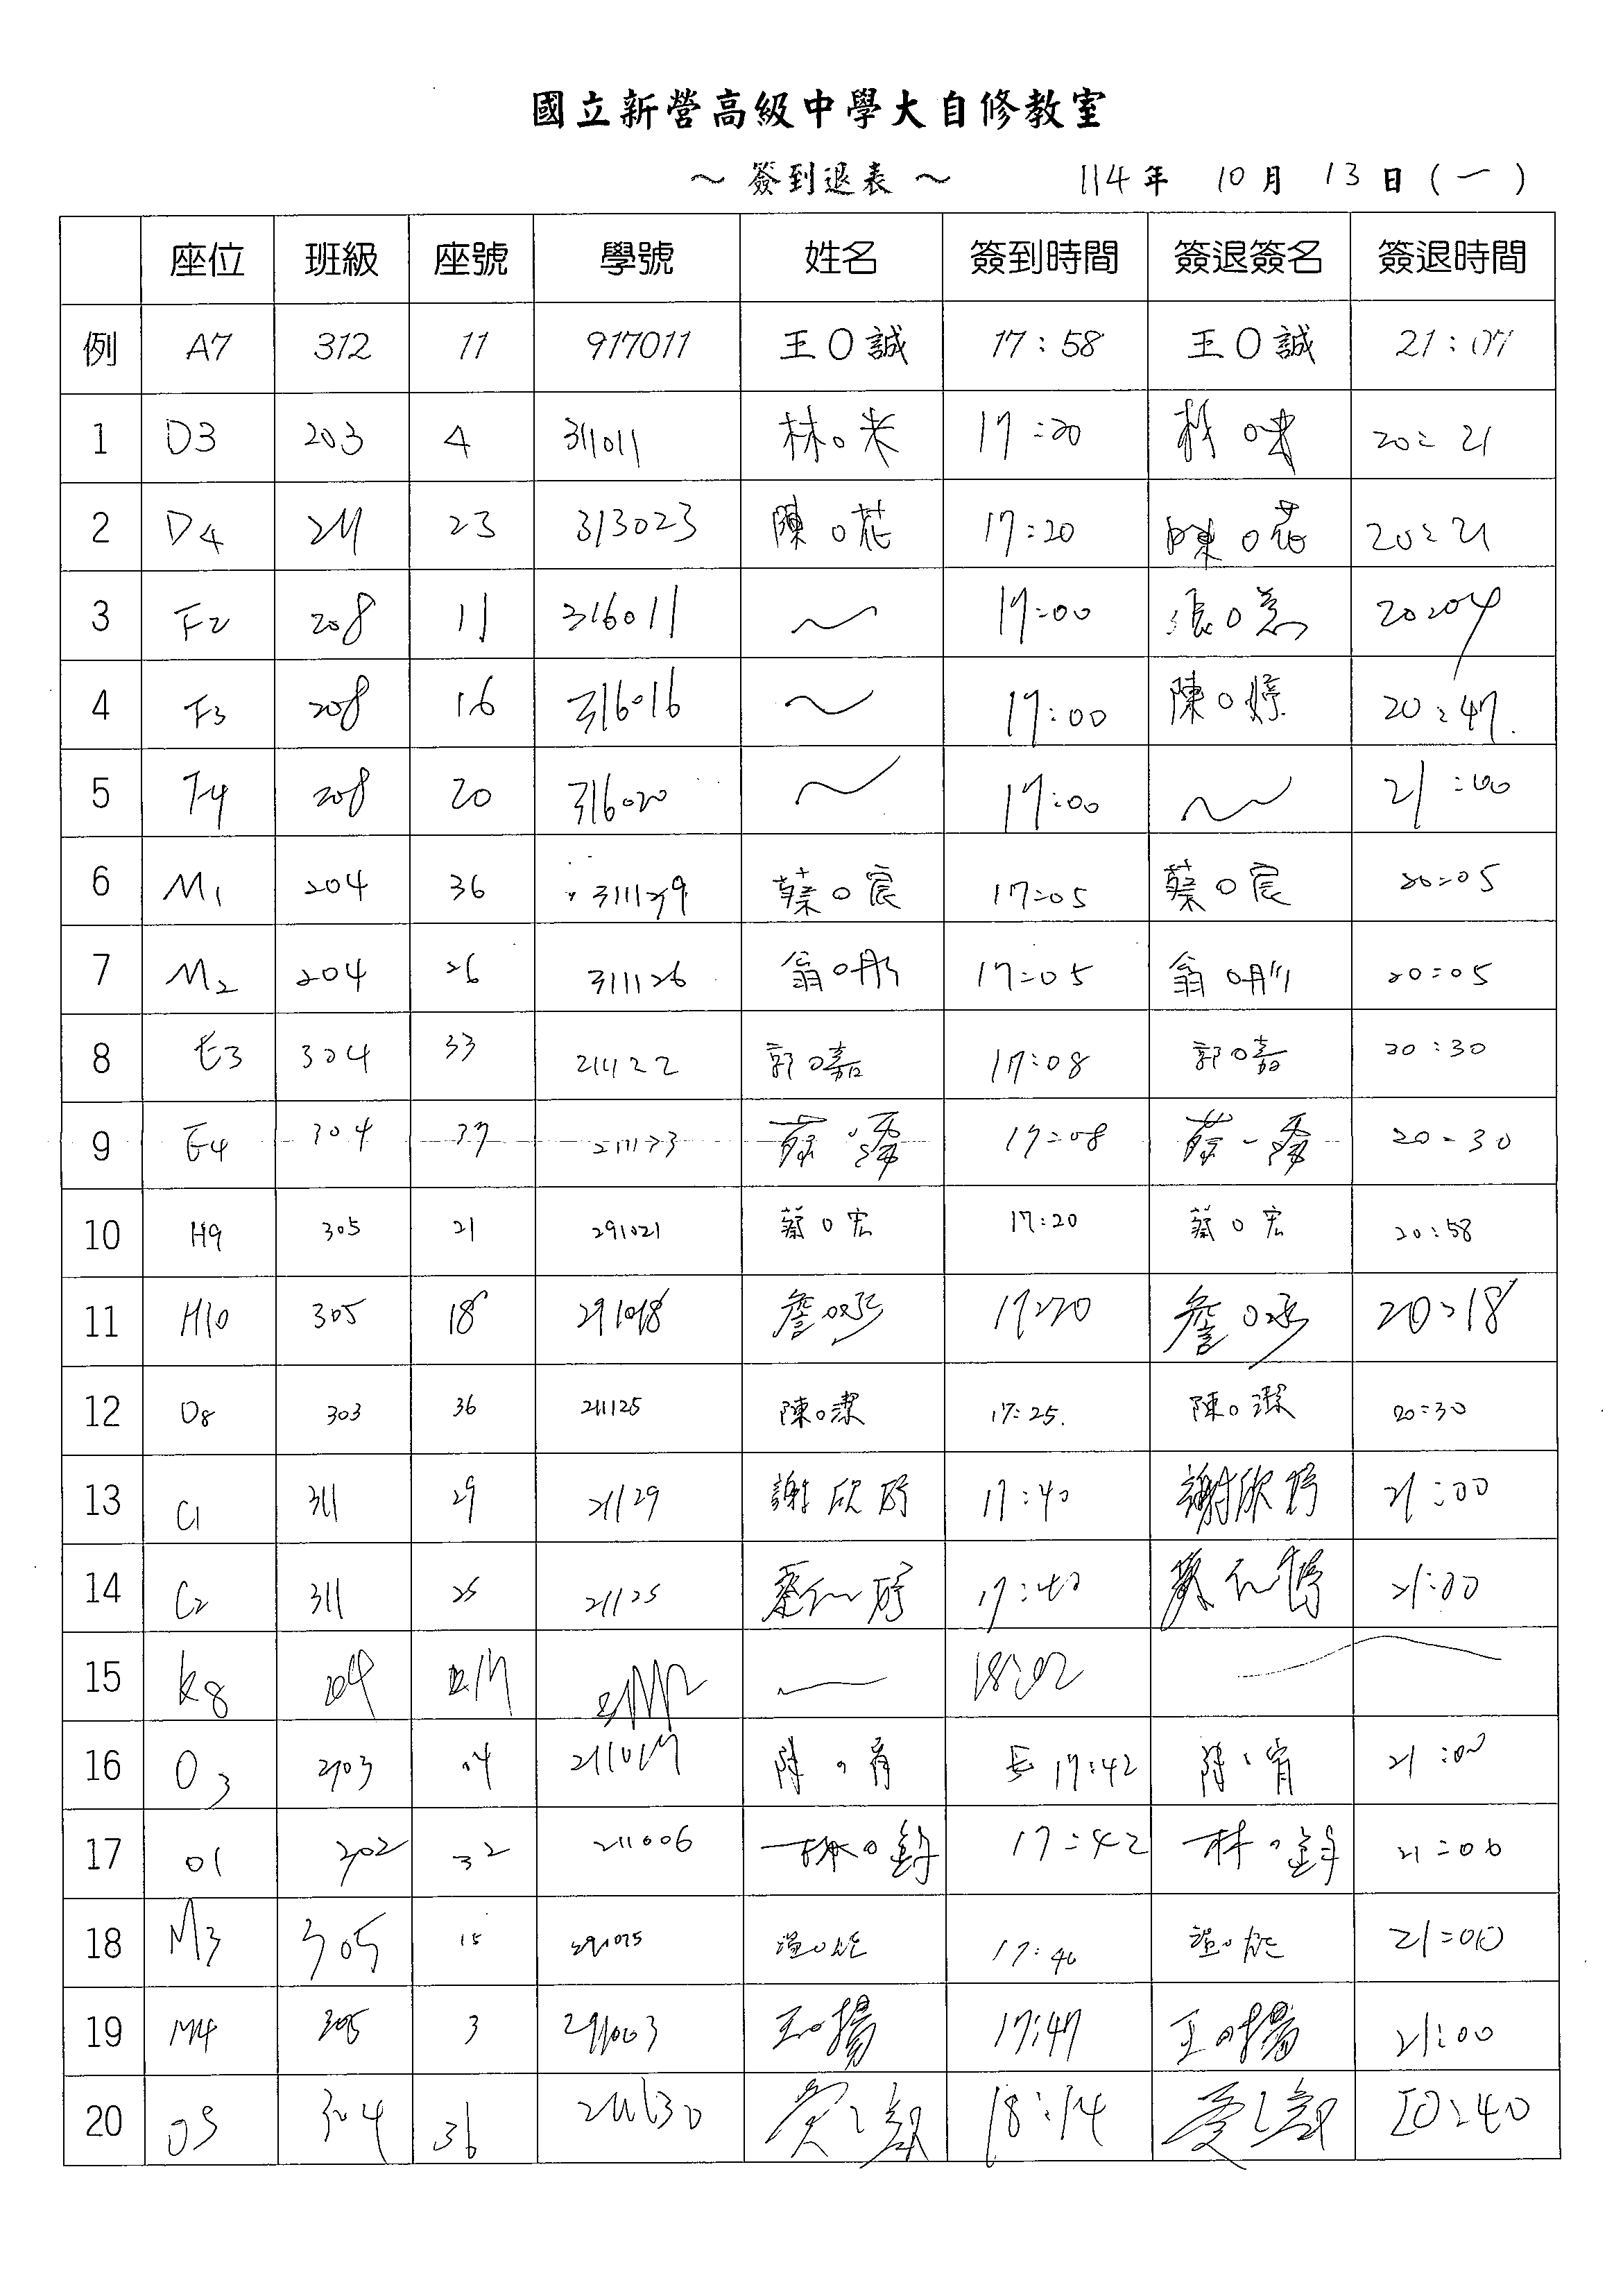 國立新營高級中學大自修教室
～簽到退表～ 114年 10月 13日(一)
座位 班級 座號 學號 姓名 簽到時間 簽退簽名 簽退時間
例 A7 312 11 917011 王O誠 17:58 王O誠 21:07
1 D3 203 4 311011 林O米 17:20 20:21
2 D4 211 23 313023 陳O花 17:20 陳O花 20:21
3 F2 208 11 316011 ～ 17:00 張O為 20:04
4 F3 208 16 316016 ～ 17:00 陳O婷 20:47
5 F4 208 20 316020 ～ 17:00 ～ 21:00
6 M1 204 36 17:05 蔡O宸 20:05
7 M2 204 26 311126 翁O彤 17:05 翁O彤 20:05
8 E3 304 33 211122 郭O嘉 17:08 郭O嘉 20:30
9 E4 304 37 17:08 20:30
10 H9 305 21 291021 蔡O宏 17:20 蔡O宏 20:58
11 H10 305 18 291018 詹O 17:20 詹O 20:18
12 O8 303 36 211125 陳O潔 17:25 陳O潔 20:30
13 C1 311 29 21129 謝欣妤 17:40 謝欣妤 21:00
14 C2 311 25 21125 17:40 21:00
15 K8 18:02
16 O3 203 陳 17:42 陳 21:00
17 O1 202 32 211006 林O錚 17:42 林O錚 21:00
18 M3 305 15 溫O 17:46 溫O 21:00
19 M4 305 3 291003 王O揚 17:47 王O揚 21:00
20 O5 304 36 211130 18:14 20:40